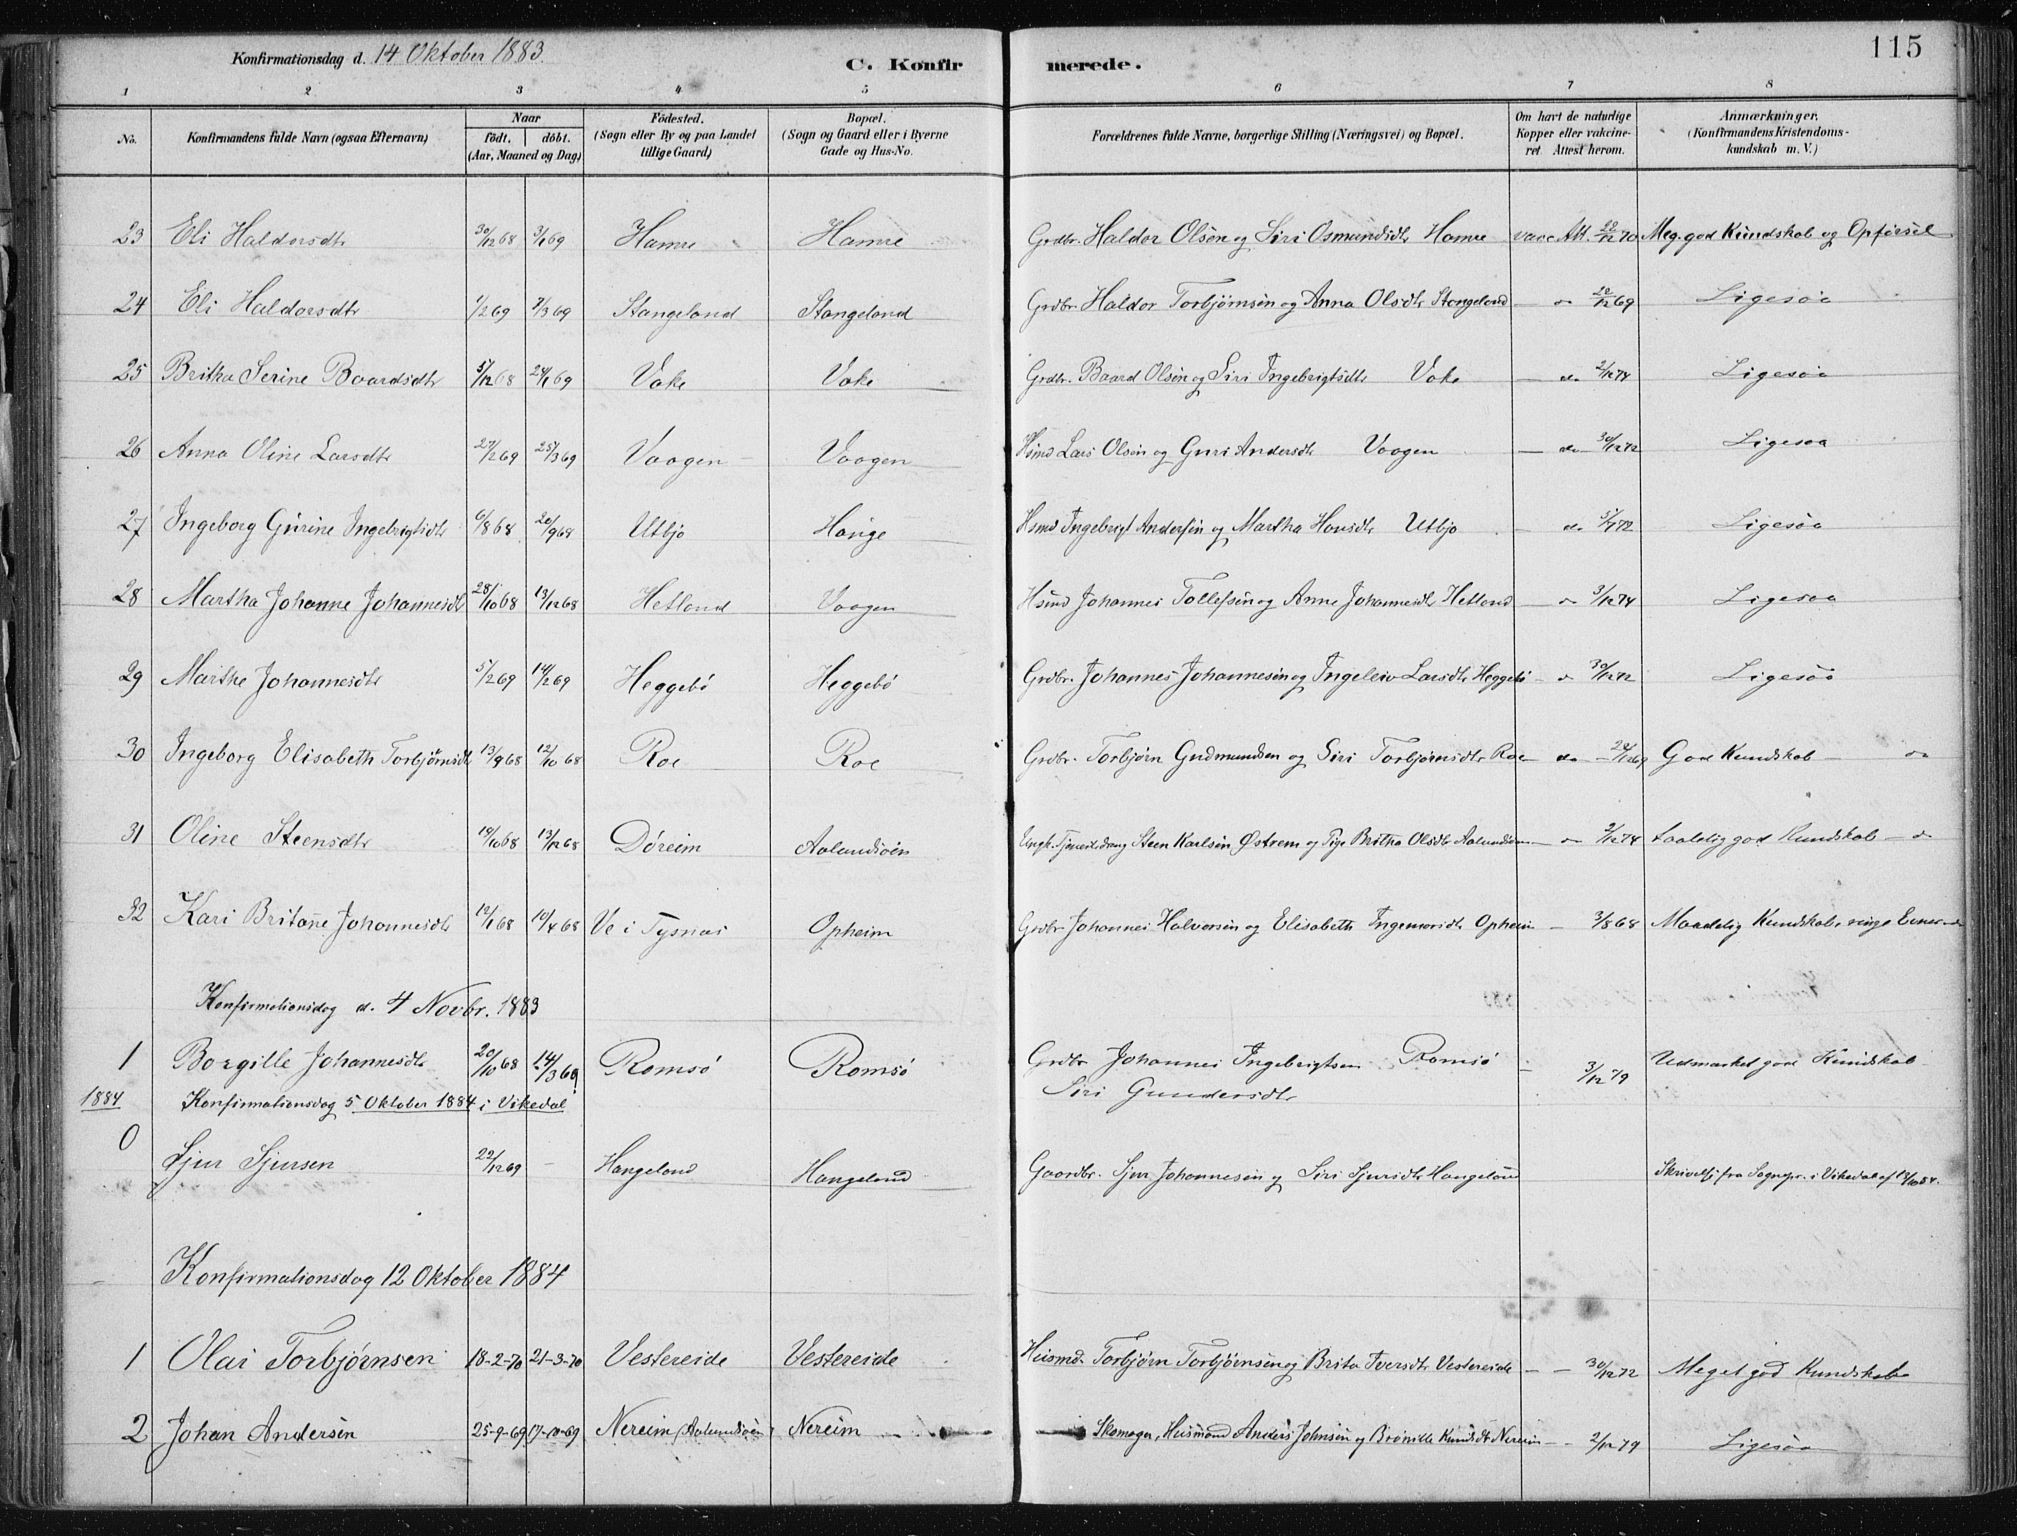 115
Konfirmationsdag d. 14 Oktober 1883. C. Konfirmerede.
1 2 3 4 5 6 7 8
No. Konfirmandens fulde Navn (ogsaa Efternavn) Naar født. døbt. (Aar, Maaned og Dag) Fødested. (Sogn eller By og paa Landet tillige Gaard) Bopæl. (Sogn og Gaard eller i Byerne Gade og Hus-No. Forældrenes fulde Navne, borgerlige Stilling (Næringsvei) og Bopæl. Om havt de naturlige Kopper eller vakcineret Attest herom. Anmærkninger. (Konfirmandens Kristendomskundskab m. V.)
23 Eli Haldorsdtr 30/12 68 3/1 69 Hamre Hamre Grdbr. Haldor Olsen og Siri Osmundsdtr Hamre vacc. Att. 22/12 70 Meg. god Kundskab og Opførsel
24 Eli Haldorsdtr 1/2 69 7/3 69 Stangeland Stangeland Grdbr. Haldor Torbjørnsen og Anna Olsdtr Stangeland — do 22/12 69 Ligesaa
25 Britha Serine Baardsdtr 5/12 68 24/1 69 Vake Vake Grdbr. Baard Olsen og Siri Ingebrigtsdtr Vake — do 2/12 74 Ligesaa
26 Anna Oline Larsdtr 27/2 69 25/3 69 Vaagen Vaagen Hsmd Lars Olsen og Guri Andersdtr Vaagen — do 30/12 72 Ligesaa
27 Ingeborg Gurine Ingebrigtsdtr 6/8 68 20/9 68 Utbjo Hauge Hsmd Ingebrigt Andersen og Martha Hansdtr Utbjo — do 5/7 72 Ligesaa
28 Martha Johanne Johannesdtr 28/10 68 13/12 68 Hetland Vaagen Hsmd Johannes Tollefsen og Anne Johannesdtr Hetland — do 3/12 74 Ligesaa
29 Marthe Johannesdtr 5/2 69 14/2 69 Heggebø Heggebø Grdbr. Johannes Johannesen og Ingeleiv Larsdtr Heggebø — do 30/12 72 Ligesaa
30 Ingeborg Elisabeth Torbjørnsdtr 13/9 68 12/10 68 Roe Roe Grdbr. Torbjørn Gudmundsen og Siri Torbjørnsdtr Roe — do — 22/12 69 God Kundskab — do
31 Oline Steensdtr 19/10 68 13/12 68 Døreim Aalundsøen Ungk. Tjenestedreng Steen Karlsen Østrem og Pige Britha Olsdtr Aalundsøen — do 2/12 74 Taalelig god Kundskab — do
32 Kari Britanne Johannesdtr 12/1 68 10/4 68 Ve i Tysnæs Opheim Grdbr Johannes Halvorsen og Elisabeth Ingemorsdtr Opheim — 3/8 68 Maadelig Kundskab, ringe Evner
Konfirmationsdag d. 4 Novbr. 1883
1 Borgille Johannesdtr 20/10 68 14/3 69 Romsø Romsø Grdbr Johannes Ingebrigtsen Romsø — 3/12 79 Udmærket god Kundskab
Siri Gundersdtr
1884 Konfirmationsdag 5 Oktober 1884 i Vikedal
0 Sjur Sjursen 22/12 69 — Hangeland Hangeland Gaardbr. Sjur Johannesen og Siri Sjursdtr Hangeland Skrivelse fra Sognepr. i Vikedal af 13/10 84.
Konfirmationsdag 12 Oktober 1884
1 Olai Torbjørnsen 18-2-70 21-3-70 Vestereide Vestereide Huismd. Torbjørn Torbjørnsen og Brita Iversdtr Vestereide — — 30/12 72 Meget god Kundskab
2 Johan Andersen 25-9-69 17-10-69 Nereim (Aalundsøen) Nereim Skomager, Husmand Anders Johnsen og Brønille Knudsdtr Nereim — 2/12 79 Ligesaa